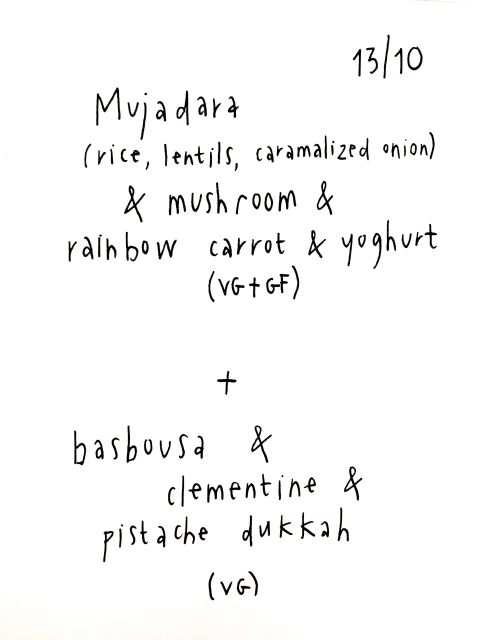 13/10
Mujadara
(rice, lentils, caramalized onion)
& mushroom &
rainbow carrot & yoghurt
(VG+GF)
+
basbousa &
clementine &
pistache dukkah
(VG)